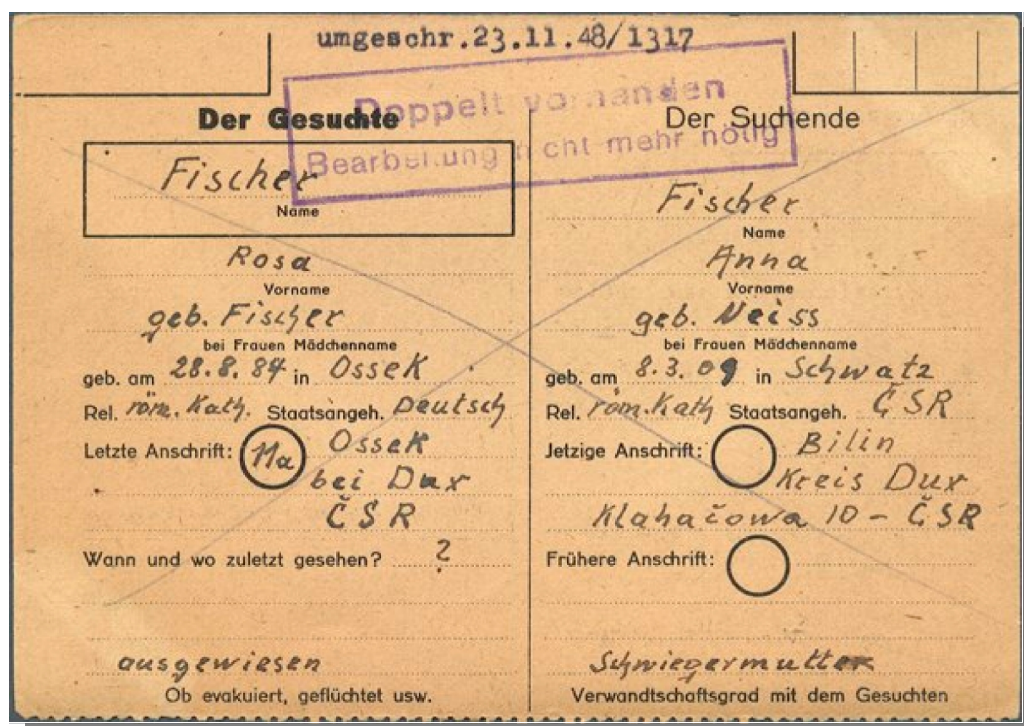 umgeschr.23.11.48/1317
Doppelt vorhanden
Bearbeitung nicht mehr nötig
Der Gesuchte
Fischer
Name
Rosa
Vorname
geb. Fischer
bei Frauen Mädchenname
geb. am 28.8.84 in Ossek
Rel. röm. Kath. Staatsangeh. Deutsch
Letzte Anschrift: 11a Ossek
bei Dux
ČSR
Wann und wo zuletzt gesehen? ?
ausgewiesen
Ob evakuiert, geflüchtet usw.
Der Suchende
Fischer
Name
Anna
Vorname
geb. Neiss
bei Frauen Mädchenname
geb. am 8.3.09 in Schwatz
Rel. röm. Kath Staatsangeh. ČSR
Jetzige Anschrift: Bilin
Kreis Dux
Klahačowa 10 - ČSR
Frühere Anschrift:
Schwiegermutter
Verwandtschaftsgrad mit dem Gesuchten